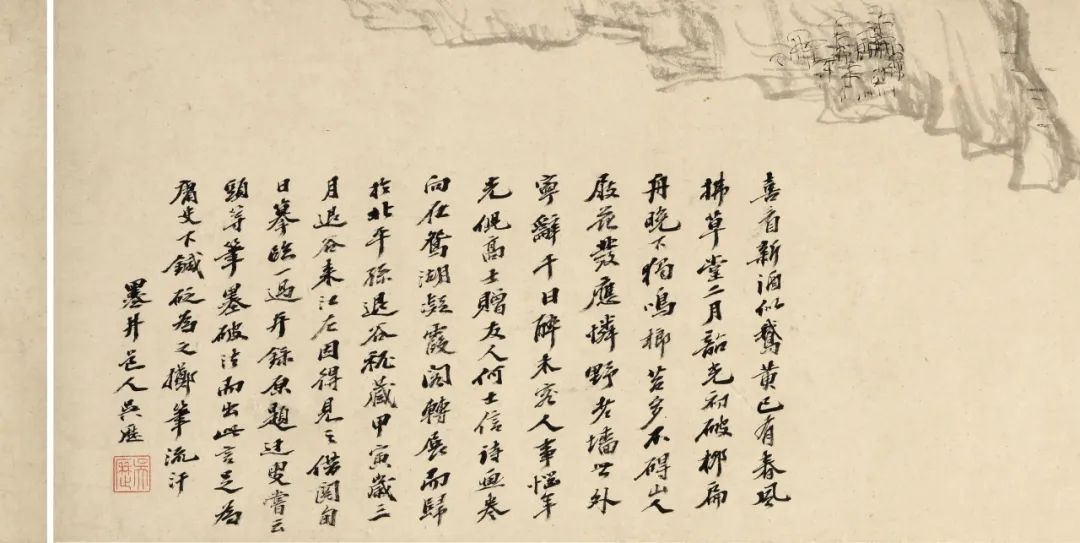 喜看新酒似鵞黄已有春風
拂草堂二月韶光初破柳扁
舟晚下獨鳴榔苔多不碍山人
屐花發應憐野老墻世外
寧辭千日醉未容人事惱年
光倪高士贈友人何士信诗画卷
向在鴛湖凝霞閣轉展而歸
於北平孫退谷秘藏甲寅歲三
月退谷来江左因得見之借閲旬
日摹臨一過并録原題迂叟嘗云
頭等筆墨破法而出此言足为
庸史下鍼砭为之擲筆流汗
墨井道人吴歷
吴歷